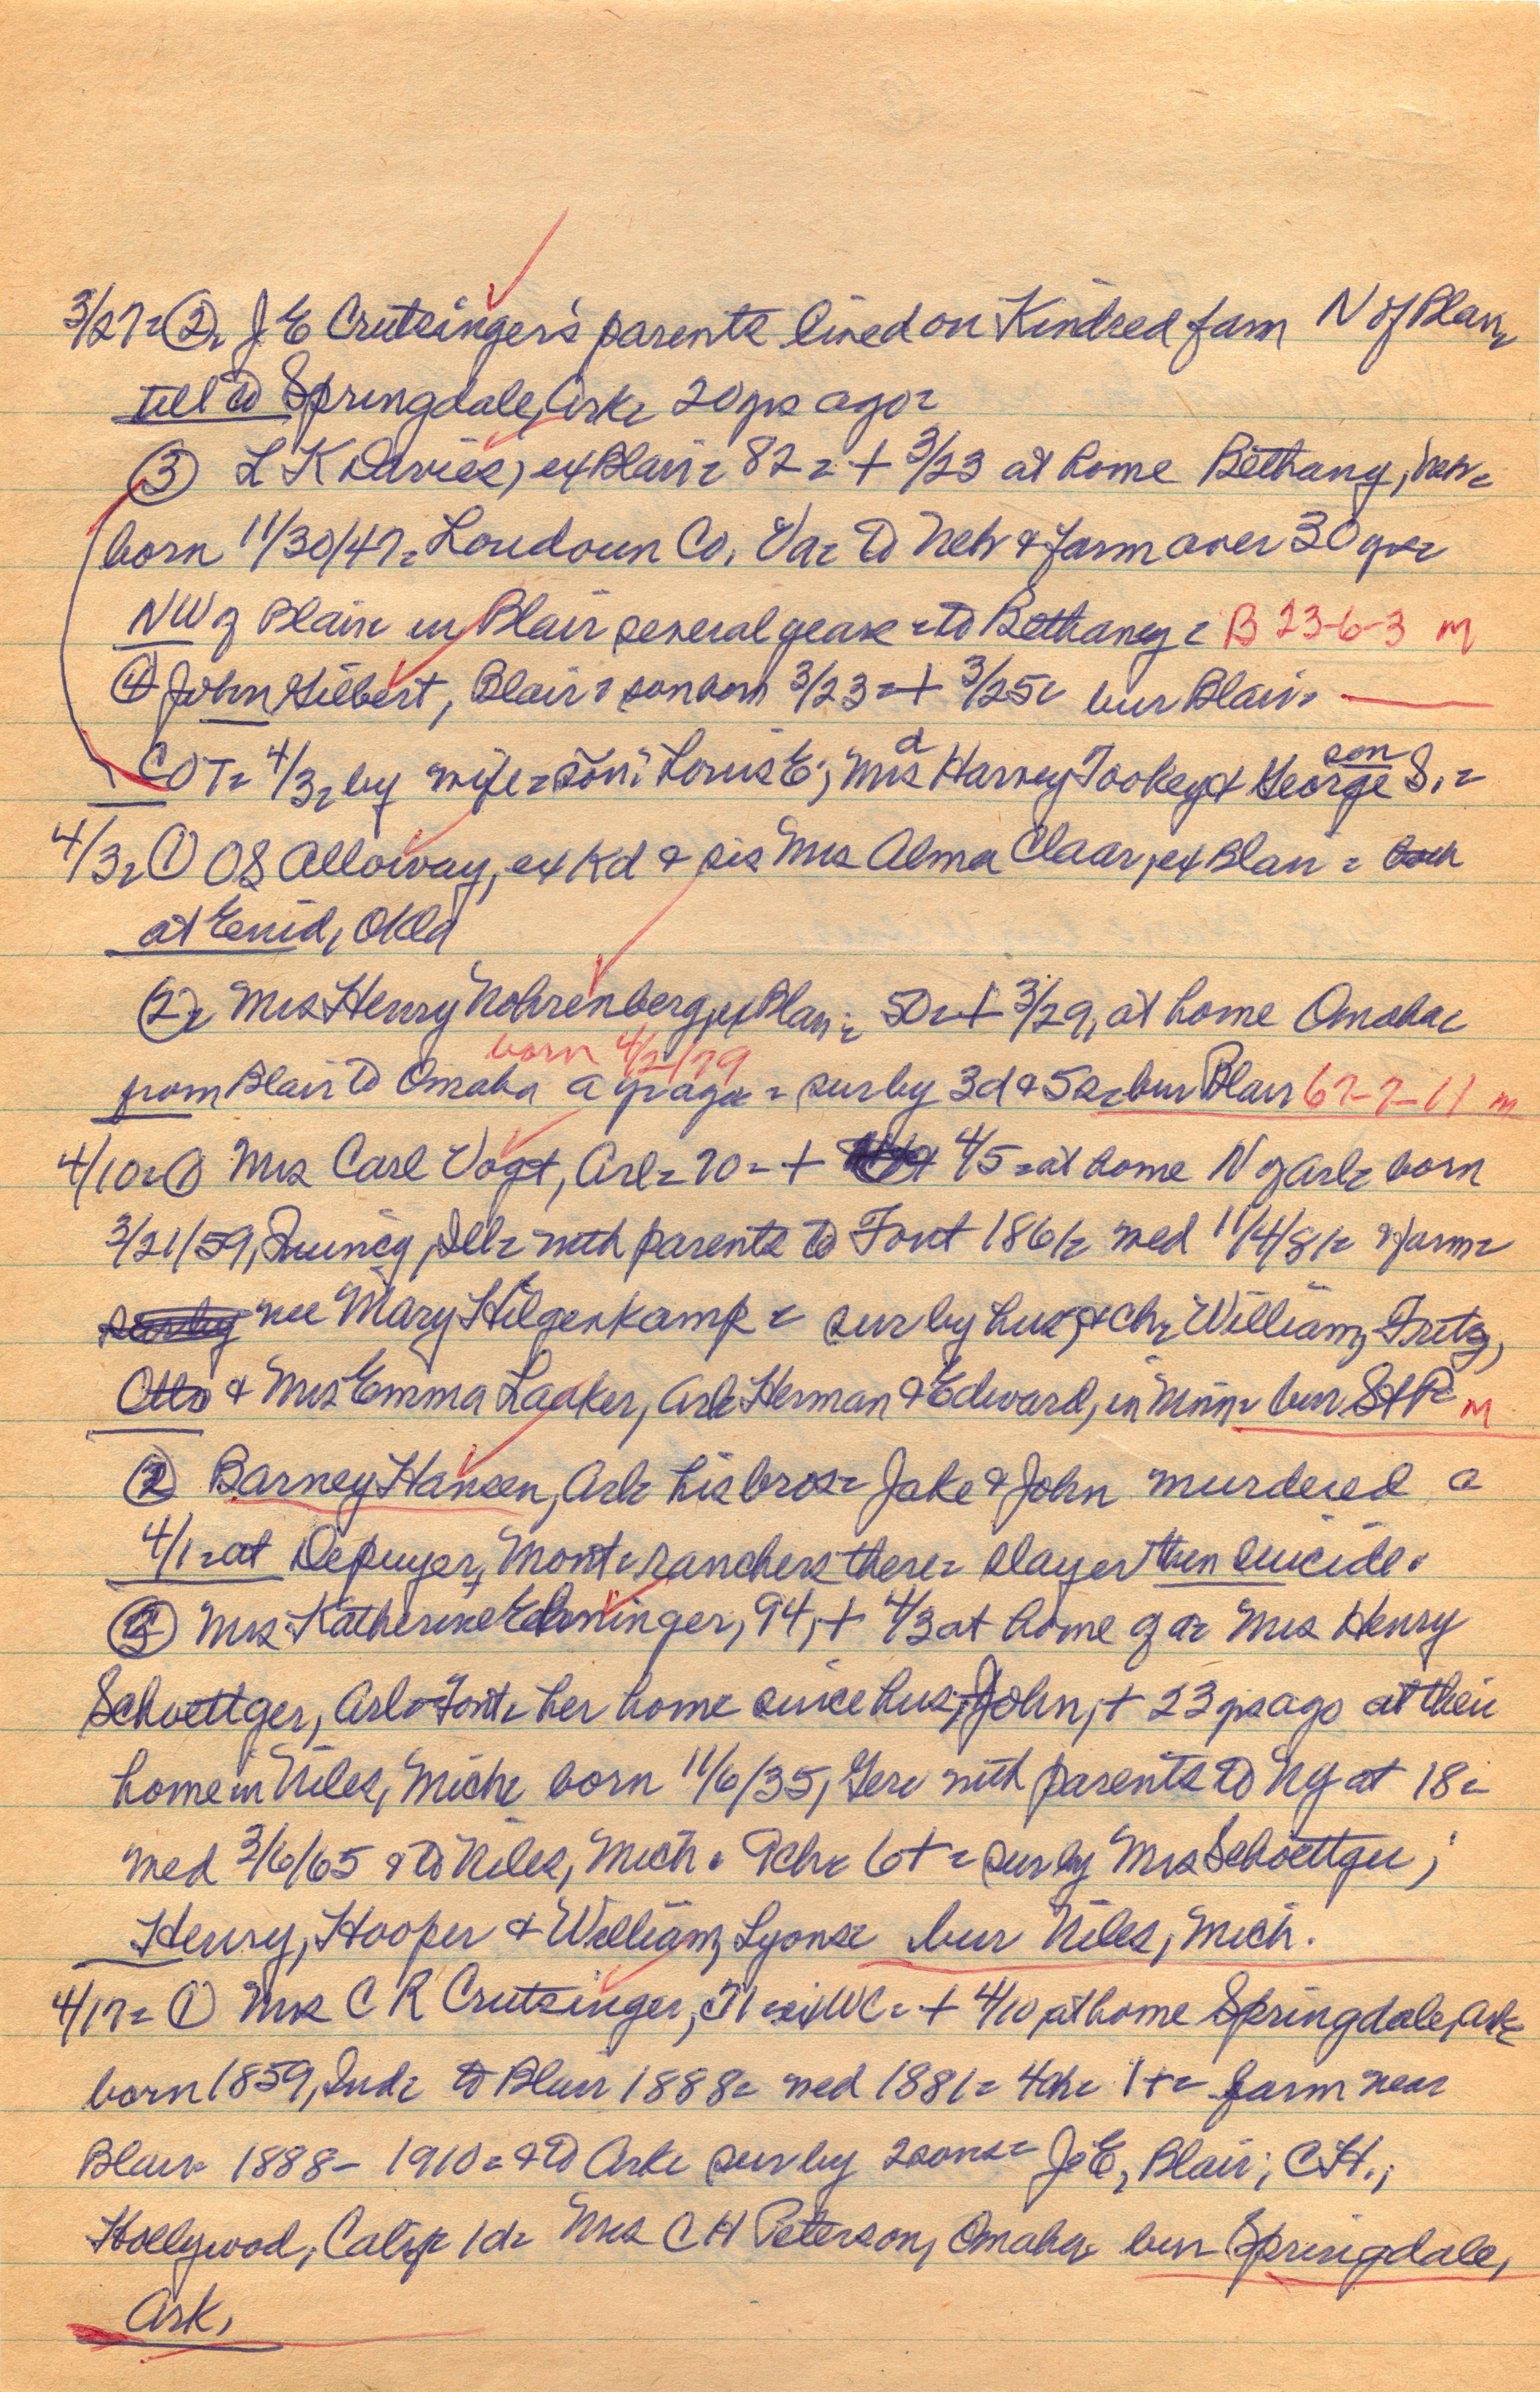 3/27= ② J E Crutsinger's parents lived on Kindred farm N of Blair
till to Springdale, Ark= 20 yrs ago=
③ L K Davies, ex Blair= 82= + 3/23 at home Bethany, Neb=
born 11/30/47= Loudoun Co, Va= to Neb & farm over 30 yrs=
NW of Blair= in Blair several years= to Bethany= B 23-6-3 m
④ John Gilbert, Blair= son born 3/23= + 3/25= bur Blair=
COT= 4/3= by wife= son: Louis E; Mrs Harvey Tookey d & George S.= son
4/3= ① OS Alloway, ex Kd & sis Mrs Alma Claar, ex Blair=
at Enid, Okla
②= Mrs Henry Nohrenberg, ex Blair= 50= + 3/29, at home Omaha=
born 4/2/79
from Blair to Omaha a yr ago= sur by 3d & 5s= bur Blair 67-7-11 m
4/10= ① Mrs Carl Vogt, Arl= 70= + 4/5= at home N of Arl= born
3/21/59, Quincy, Ill= with parents to Font 1861= wed 11/4/81= & farm=
nee Mary Hilgenkamp= sur by hus, & ch= William, Fritz,
Otto & Mrs Emma Laaker, Arl= Herman & Edward, in Minn= bur St P= m
② Barney Hansen, Arl= his bros= Jake & John murdered
4/1= at Depuyer, Mont= ranchers there= slayer then suicide.
③ Mrs Katherine Ehninger, 94, + 4/3 at home of d= Mrs Henry
Schoettger, Arl= Font= her home since hus, John, + 23 yrs ago at their
home in Niles, Mich= born 11/6/35, Ger= with parents to NY at 18=
wed 3/6/65 & to Niles, Mich. 9ch= 6+= sur by Mrs Schoettger;
Henry, Hooper & William, Lyons= bur Niles, Mich.
4/17= ① Mrs C R Crutsinger, 71= ex WC= + 4/10, at home Springdale, Ark=
born 1859, Ind= to Blair 1888= wed 1881= 4ch= 1+= farm near
Blair 1888-1910= & to Ark= sur by 2 sons= J E, Blair; C H.;
Hollywood, Calif= 1d= Mrs C H Peterson, Omaha= bur Springdale,
Ark.